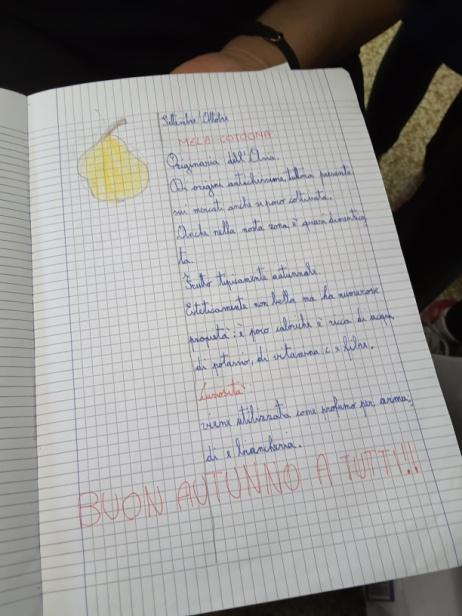 Settembre/Ottobre
MELA COTOGNA
Originaria dell'Asia.
Di origini antichissime, tuttora presente
sui mercati anche se poco coltivata.
Anche nella nostra zona è quasi dimentica
ta.
Frutto tipicamente autunnale.
Esteticamente non bella ma ha numerose
proprietà: è poco calorica è ricca di acqua,
di potassio, di vitamina c e fibre.
Curiosità:
viene utilizzata come profumo per arma,
di e biancheria.
BUON AUTUNNO A TUTTI!!